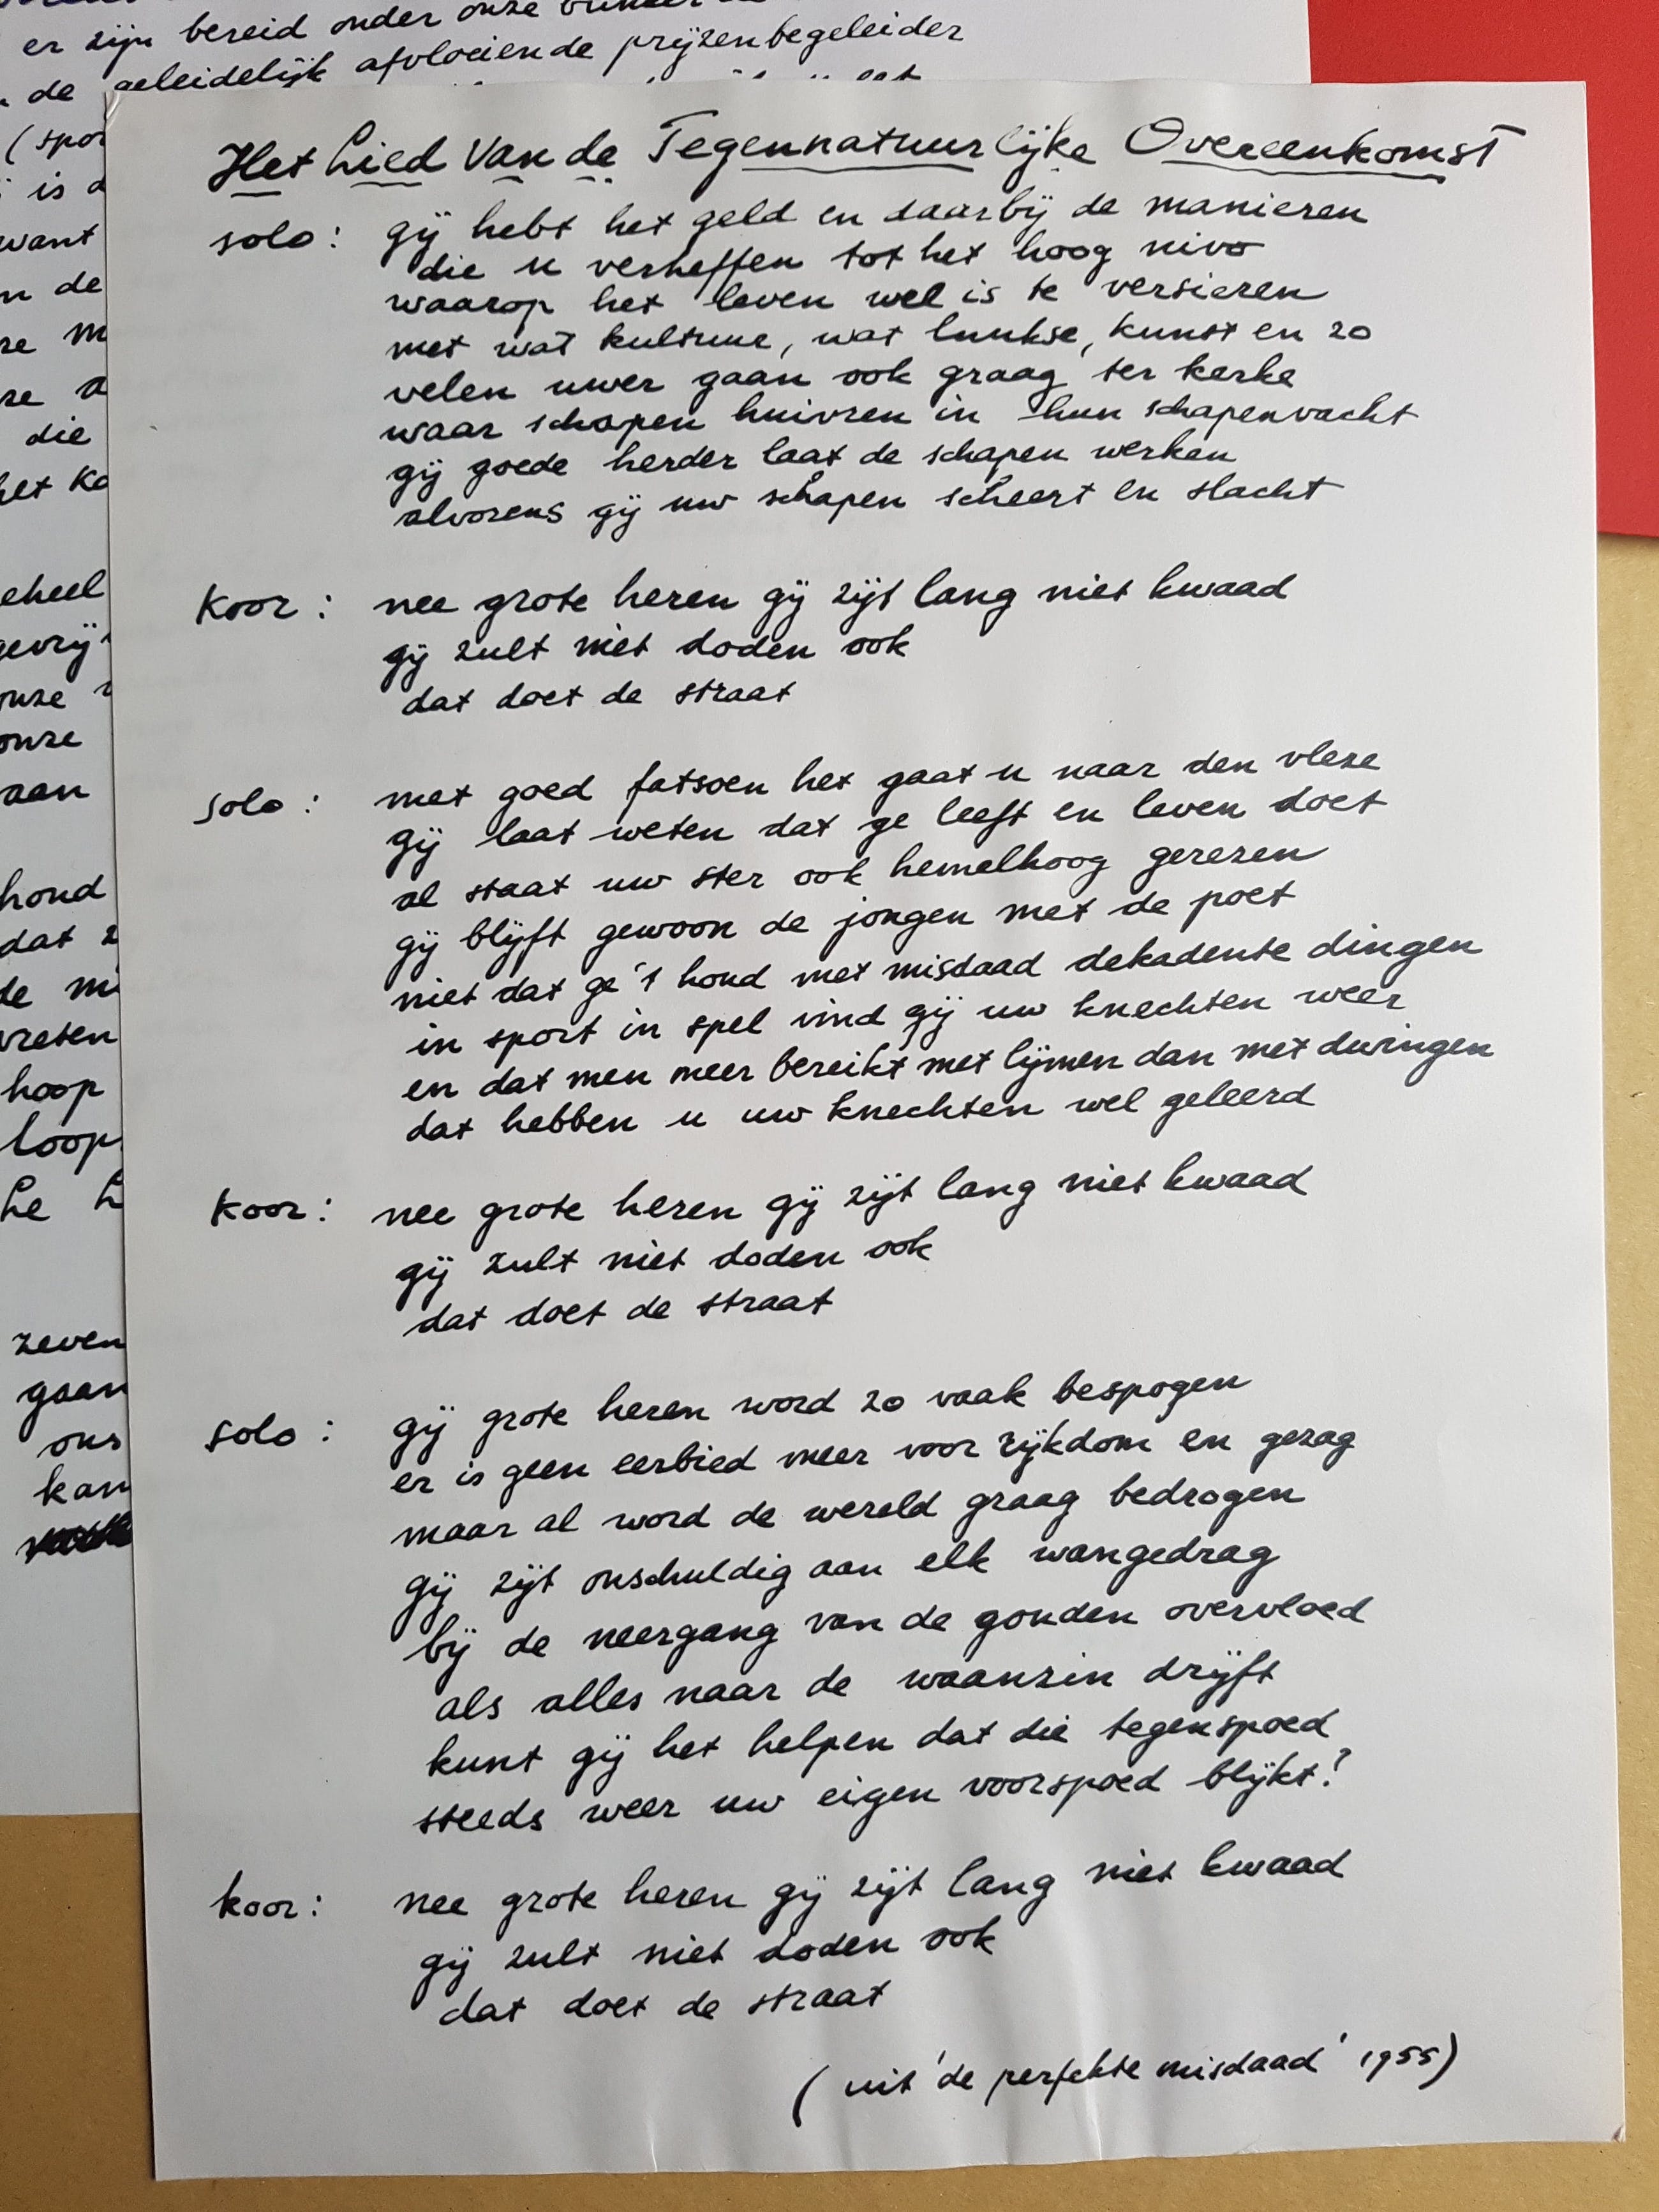 er zijn bereid onder onze
de geleidelijk afvloeiende prijzenbegeleider
(spor
is d
want
n de
re m
ze a
die
het ko
eheel
gevrij
onze
onze
aan
hond
dat z
de mi
vreten
hoop
loop
he h
zeven
gaan
ons
kan
Het Lied Van de Tegennatuurlijke Overeenkomst
solo: gij hebt het geld en daarbij de manieren
die u verheffen tot het hoog nivo
waarop het leven wel is te versieren
met wat kultuur, wat luukse, kunst en zo
velen uwer gaan ook graag ter kerke
waar schapen huivren in hun schapenvacht
gij goede herder laat de schapen werken
alvorens gij uw schapen scheert en slacht
koor: nee grote heren gij zijt lang niet kwaad
gij zult niet doden ook
dat doet de straat
solo: met goed fatsoen het gaat u naar den vleze
gij laat weten dat ge leeft en leven doet
al staat uw ster ook hemelhoog gerezen
gij blijft gewoon de jongen met de poet
niet dat ge 't houd met misdaad dekadente dingen
in sport in spel vind gij uw knechten weer
en dat men meer bereikt met lijmen dan met dwingen
dat hebben u uw knechten wel geleerd
koor: nee grote heren gij zijt lang niet kwaad
gij zult niet doden ook
dat doet de straat
solo: gij grote heren word zo vaak bespogen
er is geen eerbied meer voor rijkdom en gezag
maar al word de wereld graag bedrogen
gij zijt onschuldig aan elk wangedrag
bij de neergang van de gouden overvloed
als alles naar de waanzin drijft
kunt gij het helpen dat die tegenspoed
steeds weer uw eigen voorspoed blijkt?
koor: nee grote heren gij zijt lang niet kwaad
gij zult niet doden ook
dat doet de straat
(uit 'de perfekte misdaad' 1955)